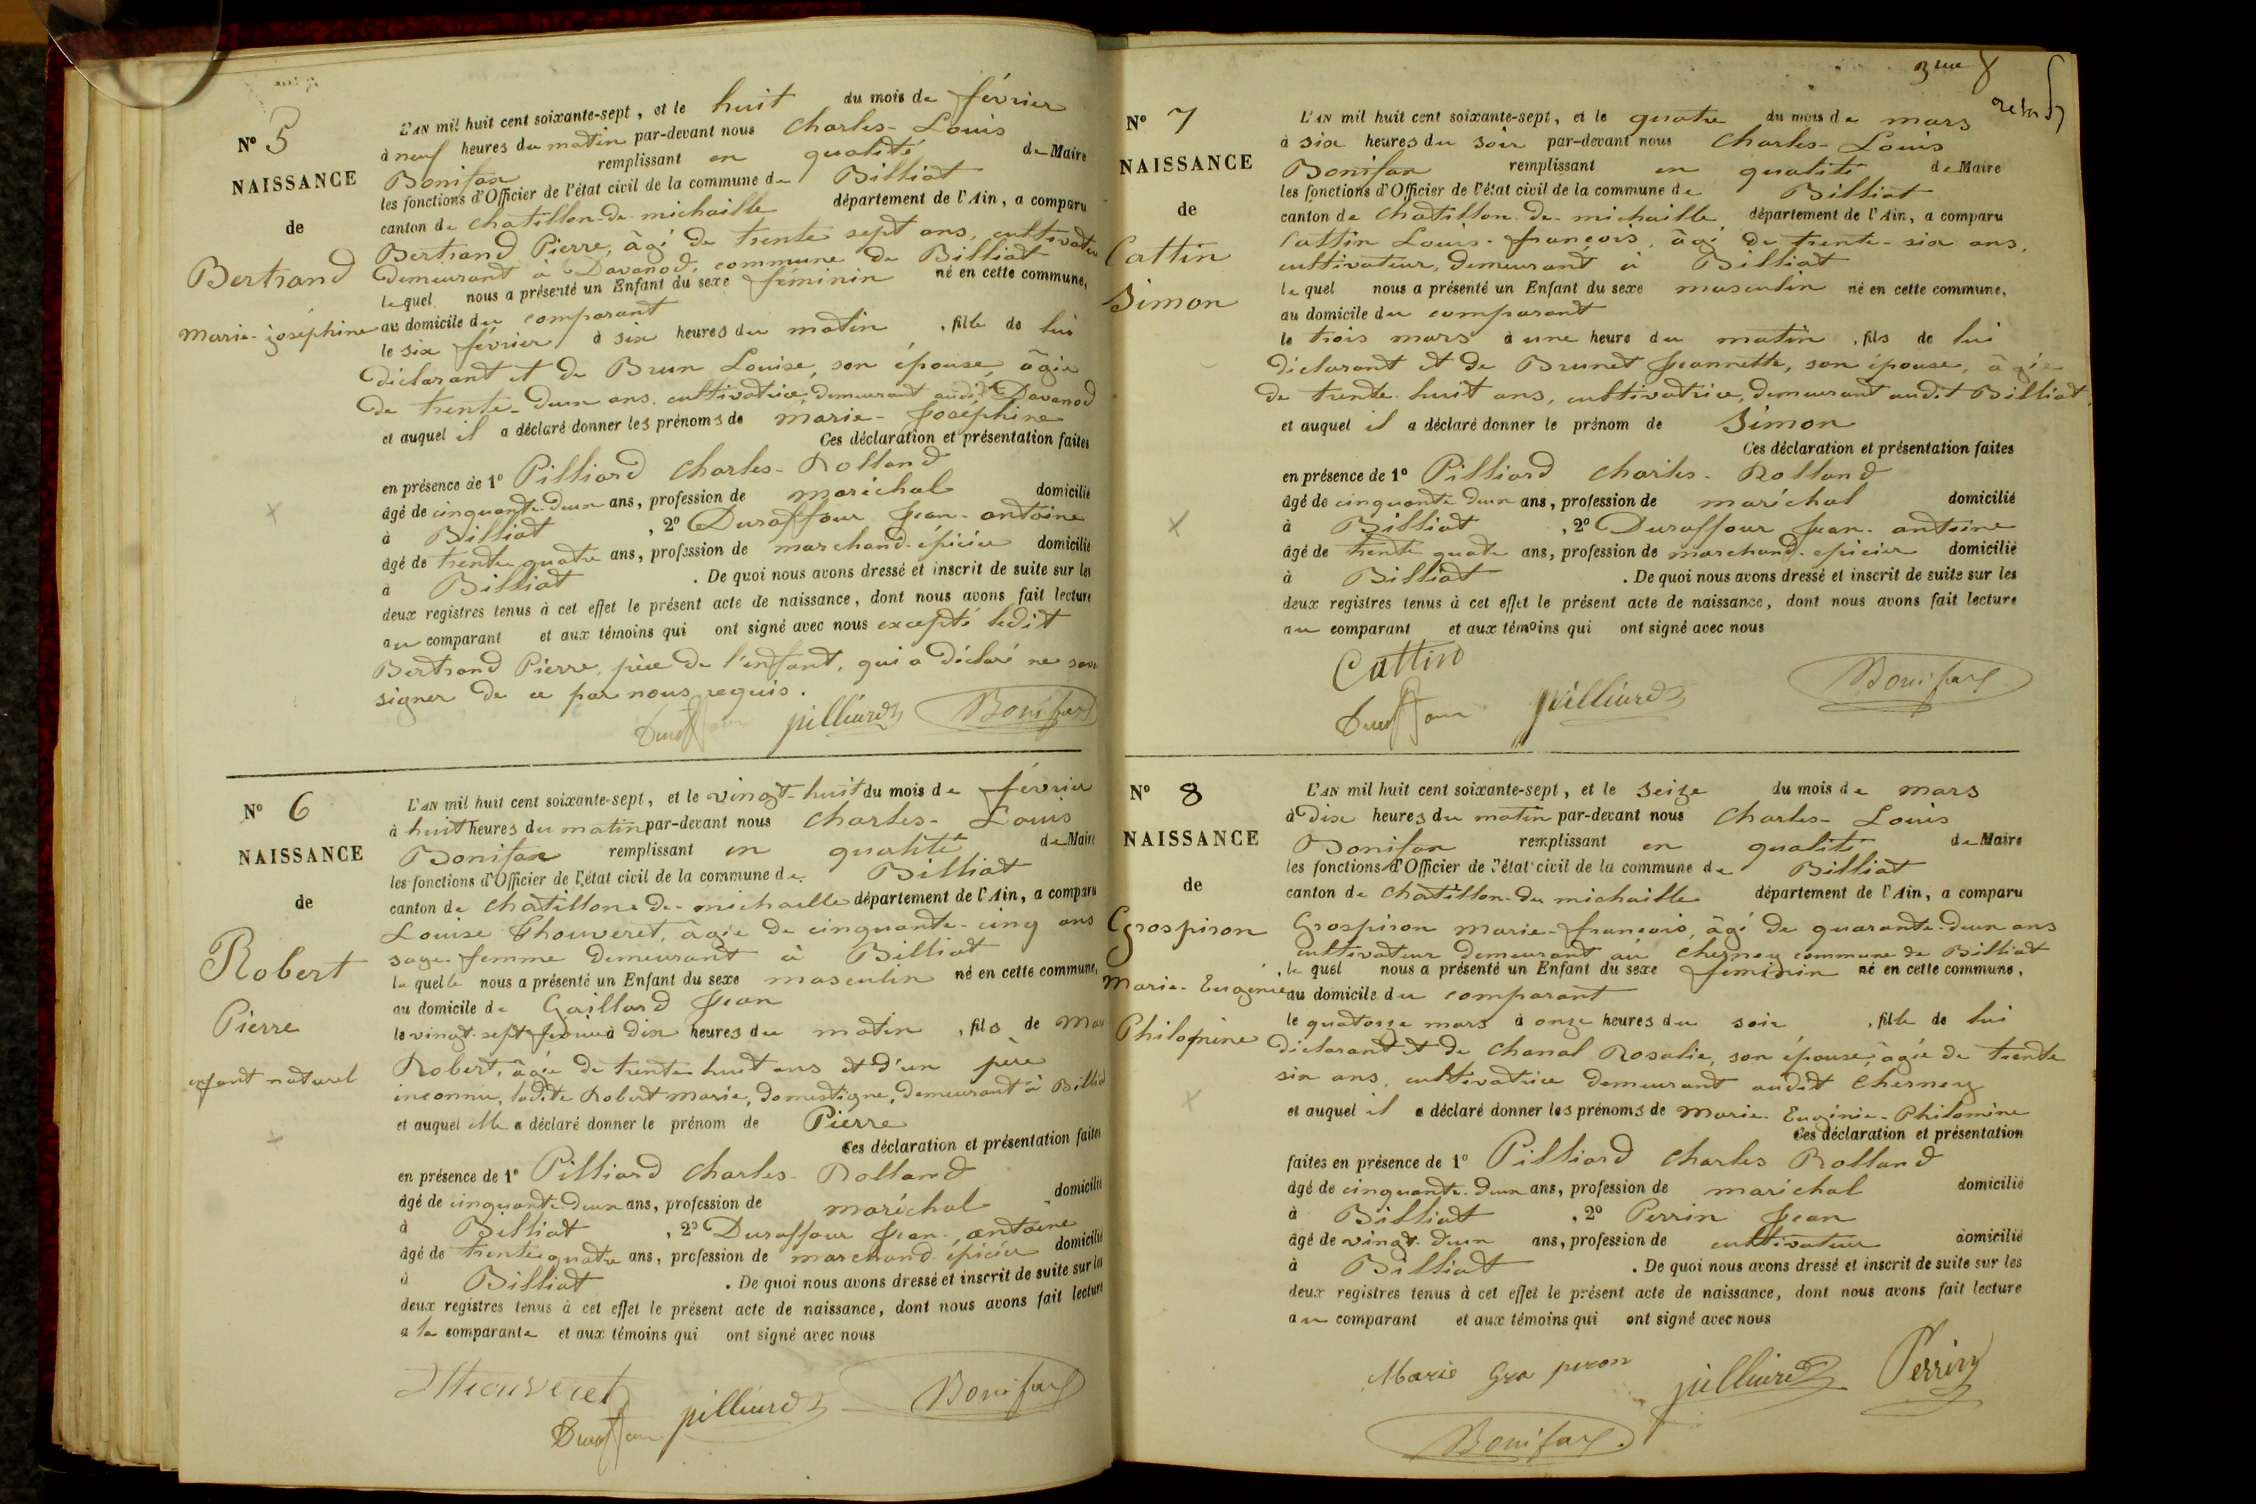 N° 5
NAISSANCE
de
Bertrand
Marie-joséphine
L'AN mil huit cent soixante-sept, et le huit du mois de février
à neuf heures du matin par-devant nous Charles-Louis
Bonifax remplissant en qualité de Maire
les fonctions d'Officier de l'état civil de la commune de Billiat
canton de Chatillon-de-michaille département de l'Ain, a comparu
Bertrand Pierre, âgé de trente sept ans, cultivateur
demeurant à Davanod, commune de Billiat
lequel nous a présenté un Enfant du sexe féminin né en cette commune,
au domicile du comparant
le six février à six heures du matin, fille de lui
déclarant et de Brun Louise, son épouse, âgée
de trente-deux ans, cultivatrice, demeurant audit Davanod
et auquel il a déclaré donner les prénoms de marie-Joséphine
Ces déclaration et présentation faites
en présence de 1° Pilliard Charles-Rolland
âgé de cinquante-deux ans, profession de maréchal domicilié
à Billiat, 2° Duraffour Jean-antoine
âgé de trente quatre ans, profession de marchand-épicier domicilié
à Billiat. De quoi nous avons dressé et inscrit de suite sur les
deux registres tenus à cet effet le présent acte de naissance, dont nous avons fait lecture
au comparant et aux témoins qui ont signé avec nous excepté ledit
Bertrand Pierre, père de l'enfant, qui a déclaré ne
signer de ce par nous requis.
pilliard Bonifax
N° 6
NAISSANCE
de
Robert
Pierre
enfant naturel
L'AN mil huit cent soixante-sept, et le vingt-huit du mois de février
à huit heures du matin par-devant nous Charles-Louis
Bonifax remplissant en qualité de Maire
les fonctions d'Officier de l'état civil de la commune de Billiat
canton de Châtillon-de-michaille département de l'Ain, a comparu
Louise Thouveret, âgée de cinquante-cinq ans
sage-femme demeurant à Billiat
laquelle nous a présenté un Enfant du sexe masculin né en cette commune,
au domicile de Gaillard Jean
le vingt-sept février à dix heures du matin, fils de Marie
Robert, âgée de trente-huit ans et d'un père
inconnu, ladite Robert Marie, domestique, demeurant à Billiat
et auquel elle a déclaré donner le prénom de Pierre
Ces déclaration et présentation faites
en présence de 1° Pilliard Charles-Rolland
âgé de cinquante-deux ans, profession de maréchal domicilié
à Billiat, 2° Duraffour Jean-antoine
âgé de trente quatre ans, profession de marchand-épicier domicilié
à Billiat. De quoi nous avons dressé et inscrit de suite sur les
deux registres tenus à cet effet le présent acte de naissance, dont nous avons fait lecture
a la comparante et aux témoins qui ont signé avec nous
Thouveret
pilliard Bonifax
N° 7
NAISSANCE
de
Cattin
Simon
L'AN mil huit cent soixante-sept, et le quatre du mois de mars
à six heures du soir par-devant nous Charles-Louis
Bonifax remplissant en qualité de Maire
les fonctions d'Officier de l'état civil de la commune de Billiat
canton de Chatillon-de-michaille département de l'Ain, a comparu
Cattin Louis-françois, âgé de trente-six ans,
cultivateur, demeurant à Billiat
lequel nous a présenté un Enfant du sexe masculin né en cette commune,
au domicile du comparant
le trois mars à une heure du matin, fils de lui
déclarant et de Brunet Jeannette, son épouse, âgée
de trente-huit ans, cultivatrice, demeurant audit Billiat,
et auquel il a déclaré donner le prénom de Simon
Ces déclaration et présentation faites
en présence de 1° Pilliard Charles-Rolland
âgé de cinquante-deux ans, profession de maréchal domicilié
à Billiat, 2° Duraffour Jean-antoine
âgé de trente quatre ans, profession de marchand-epicier domicilié
à Billiat. De quoi nous avons dressé et inscrit de suite sur les
deux registres tenus à cet effet le présent acte de naissance, dont nous avons fait lecture
au comparant et aux témoins qui ont signé avec nous
Cattin
pilliard Bonifax
N° 8
NAISSANCE
de
Grospiron
Marie-Eugénie
Philomène
L'AN mil huit cent soixante-sept, et le seize du mois de mars
à dix heures du matin par-devant nous Charles-Louis
Bonifax remplissant en qualité de Maire
les fonctions d'Officier de l'état civil de la commune de Billiat
canton de Châtillon-de michaille département de l'Ain, a comparu
Grospiron marie-françois, âgé de quarante-deux ans
cultivateur demeurant au Cherney commune de Billiat
lequel nous a présenté un Enfant du sexe féminin né en cette commune,
au domicile du comparant
le quatorze mars à onze heures du soir, fille de lui
déclarant et de Chanal Rosalie, son épouse, âgée de trente
six ans, cultivatrice demeurant audit Cherney
et auquel il a déclaré donner les prénoms de Marie-Eugénie-Philomène
Ces déclaration et présentation
faites en présence de 1° Pilliard Charles Rolland
âgé de cinquante-deux ans, profession de maréchal domicilié
à Billiat, 2° Perrin Jean
âgé de vingt-deux ans, profession de cultivateur domicilié
à Billiat. De quoi nous avons dressé et inscrit de suite sur les
deux registres tenus à cet effet le présent acte de naissance, dont nous avons fait lecture
au comparant et aux témoins qui ont signé avec nous
Marie Gro piron pilliard Perrin
Bonifax